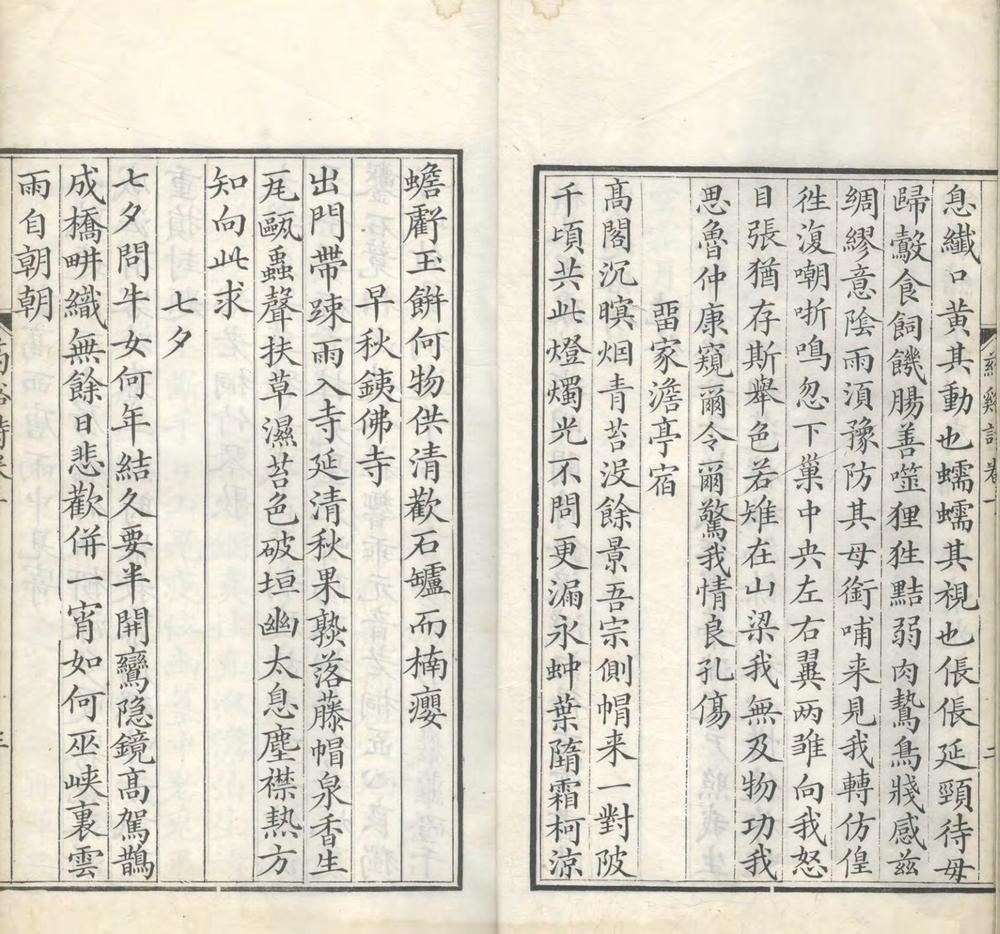 息纎口黄其動也蠕蠕其視也倀倀延頸待母
歸鷇食飼饑腸善噬狸狌黠弱肉鷙鳥戕感兹
綢繆意陰雨須豫防其母銜哺来見我轉仿偟
徃復嘲哳鳴忽下巢中央左右翼两雏向我怒
目張猶存斯舉色若雉在山梁我無及物功我
思魯仲康窺爾令爾驚我情良孔傷
畱家澹亭宿
髙閣沉暝烟青苔沒餘景吾宗側帽来一對陂
千頃共此燈燭光不問更漏永蚛葉隋霜柯涼
二
蟾罅玉餅何物供清歡石罏而楠癭
早秋銕佛寺
出門帶踈雨入寺延清秋果孰落藤帽泉香生
瓦甌蟲聲扶草濕苔色破垣幽太息塵襟熱方
知向此求
七夕
七夕問牛女何年結久要半開鸞隐鏡髙駕鵲
成橋畊織無餘日悲歡併一宵如何巫峡裏雲
雨自朝朝